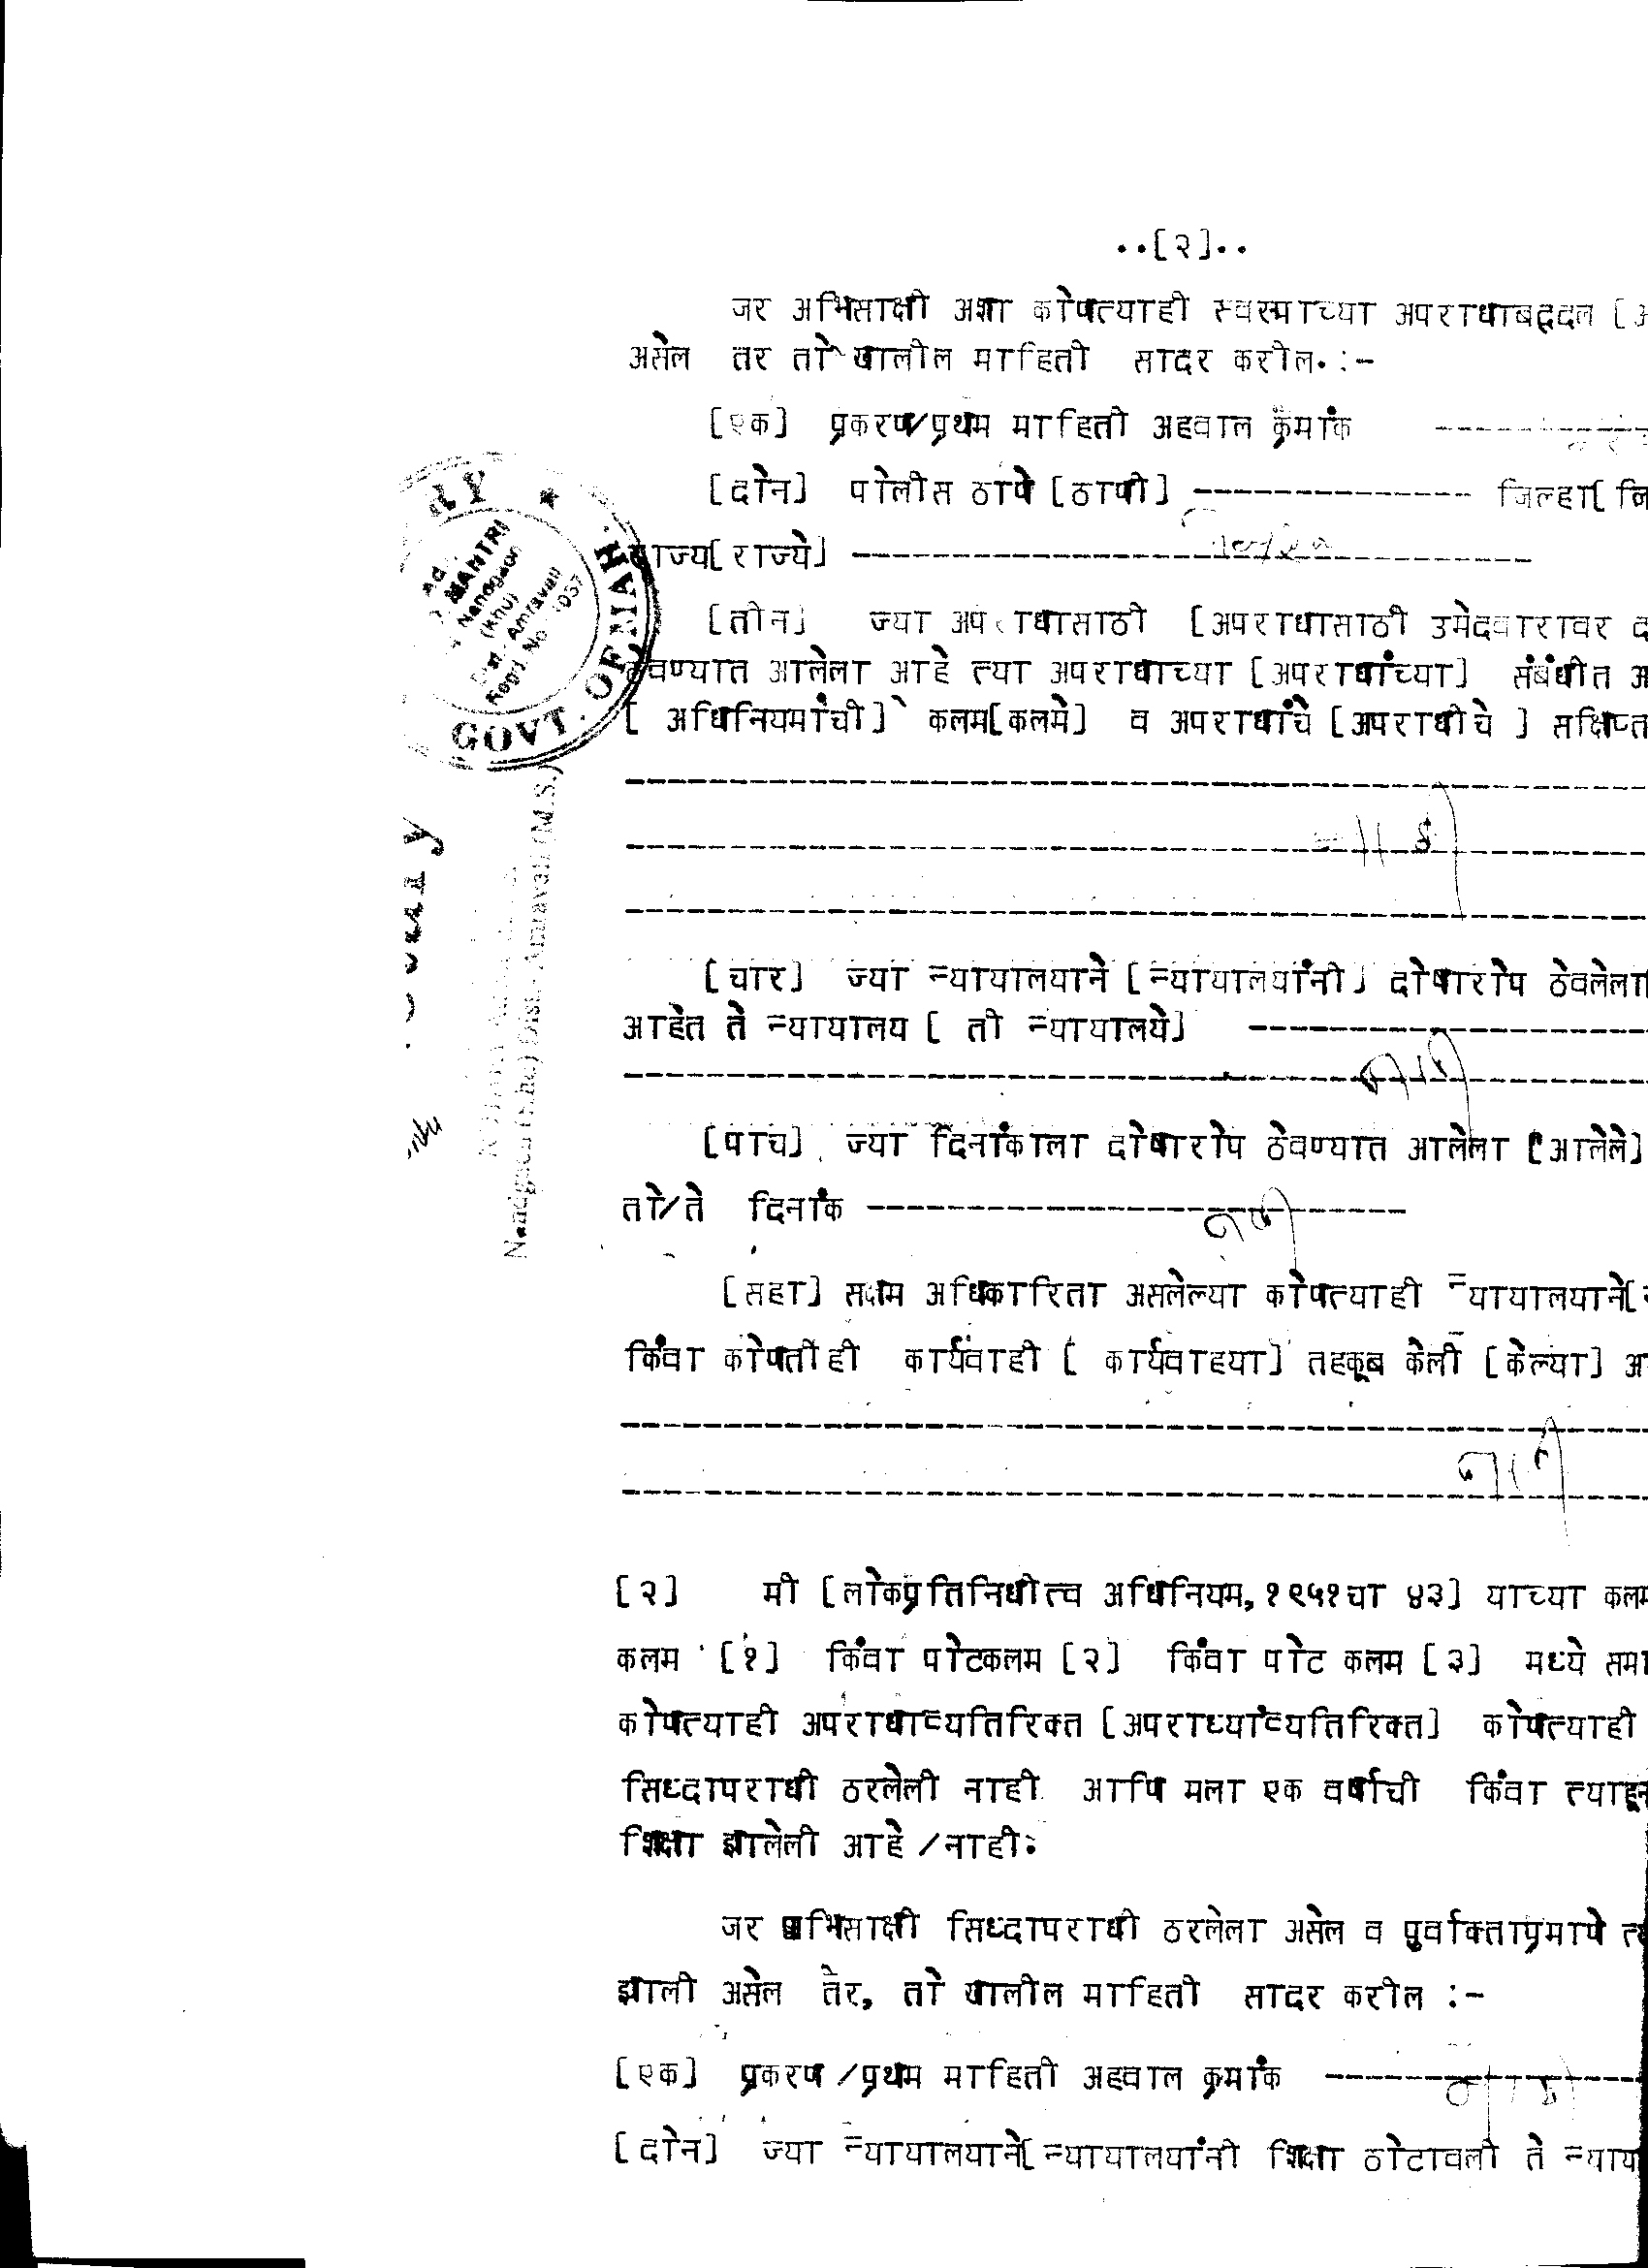 ..[२]..
जर अभिसाक्षी अशा कोणत्याही स्वरूपाच्या अपराधाबद्दल [
असेल तर तो खालील माहिती सादर करील.:-
[एक] प्रकरण/प्रथम माहिती अहवाल क्रमांक ----------
[दोन] पोलीस ठाणे [ठाणी] -------------- जिल्हा[
राज्य[राज्ये] ----------------------------------
[तीन] ज्या अपराधासाठी [अपराधासाठी उमेदवारावर
ठेवण्यात आलेला आहे त्या अपराधाच्या [अपराधांच्या] संबंधीत
[ अधिनियमांची] कलम[कलमे] व अपराधांचे [अपराधीचे ] सक्षिप्त
नाही
[चार] ज्या न्यायालयाने [न्यायालयांनी] दोषारोप ठेवलेला
आहेत ते न्यायालय [ ती न्यायालये] --------------------
नाही
[पाच] ज्या दिनांकाला दोषारोप ठेवण्यात आलेला [आलेले]
तो/ते दिनांक ---------------------------
नाही
[सहा] सक्षम अधिकारिता असलेल्या कोणत्याही न्यायालयाने[
किंवा कोणतीही कार्यवाही [ कार्यवाहया] तहकूब केली [केल्या]
नाही
[२] मी [लोकप्रतिनिधीत्व अधिनियम,१९५१चा ४३] याच्या कलम
कलम [१] किंवा पोटकलम [२] किंवा पोट कलम [३] मध्ये
कोणत्याही अपराधाव्यतिरिक्त [अपराध्यांव्यतिरिक्त] कोणत्याही
सिध्दापराधी ठरलेली नाही आणि मला एक वर्षाची किंवा त्याहून
शिक्षा झालेली आहे /नाही.
जर अभिसाक्षी सिध्दापराधी ठरलेला असेल व पुर्वाक्ताप्रमाणे
झाली असेल तर, तो खालील माहिती सादर करील :-
[एक] प्रकरण /प्रथम माहिती अहवाल क्रमांक ----------------
नाही
[दोन] ज्या न्यायालयाने[न्यायालयांनी शिक्षा ठोटावली ते
MANTRI
Nandgaon
(Khu)
Amravati
Regd. No
GOVT. OF MAH
Nandgaon (Khu) Dist. Amravati (M.S.)